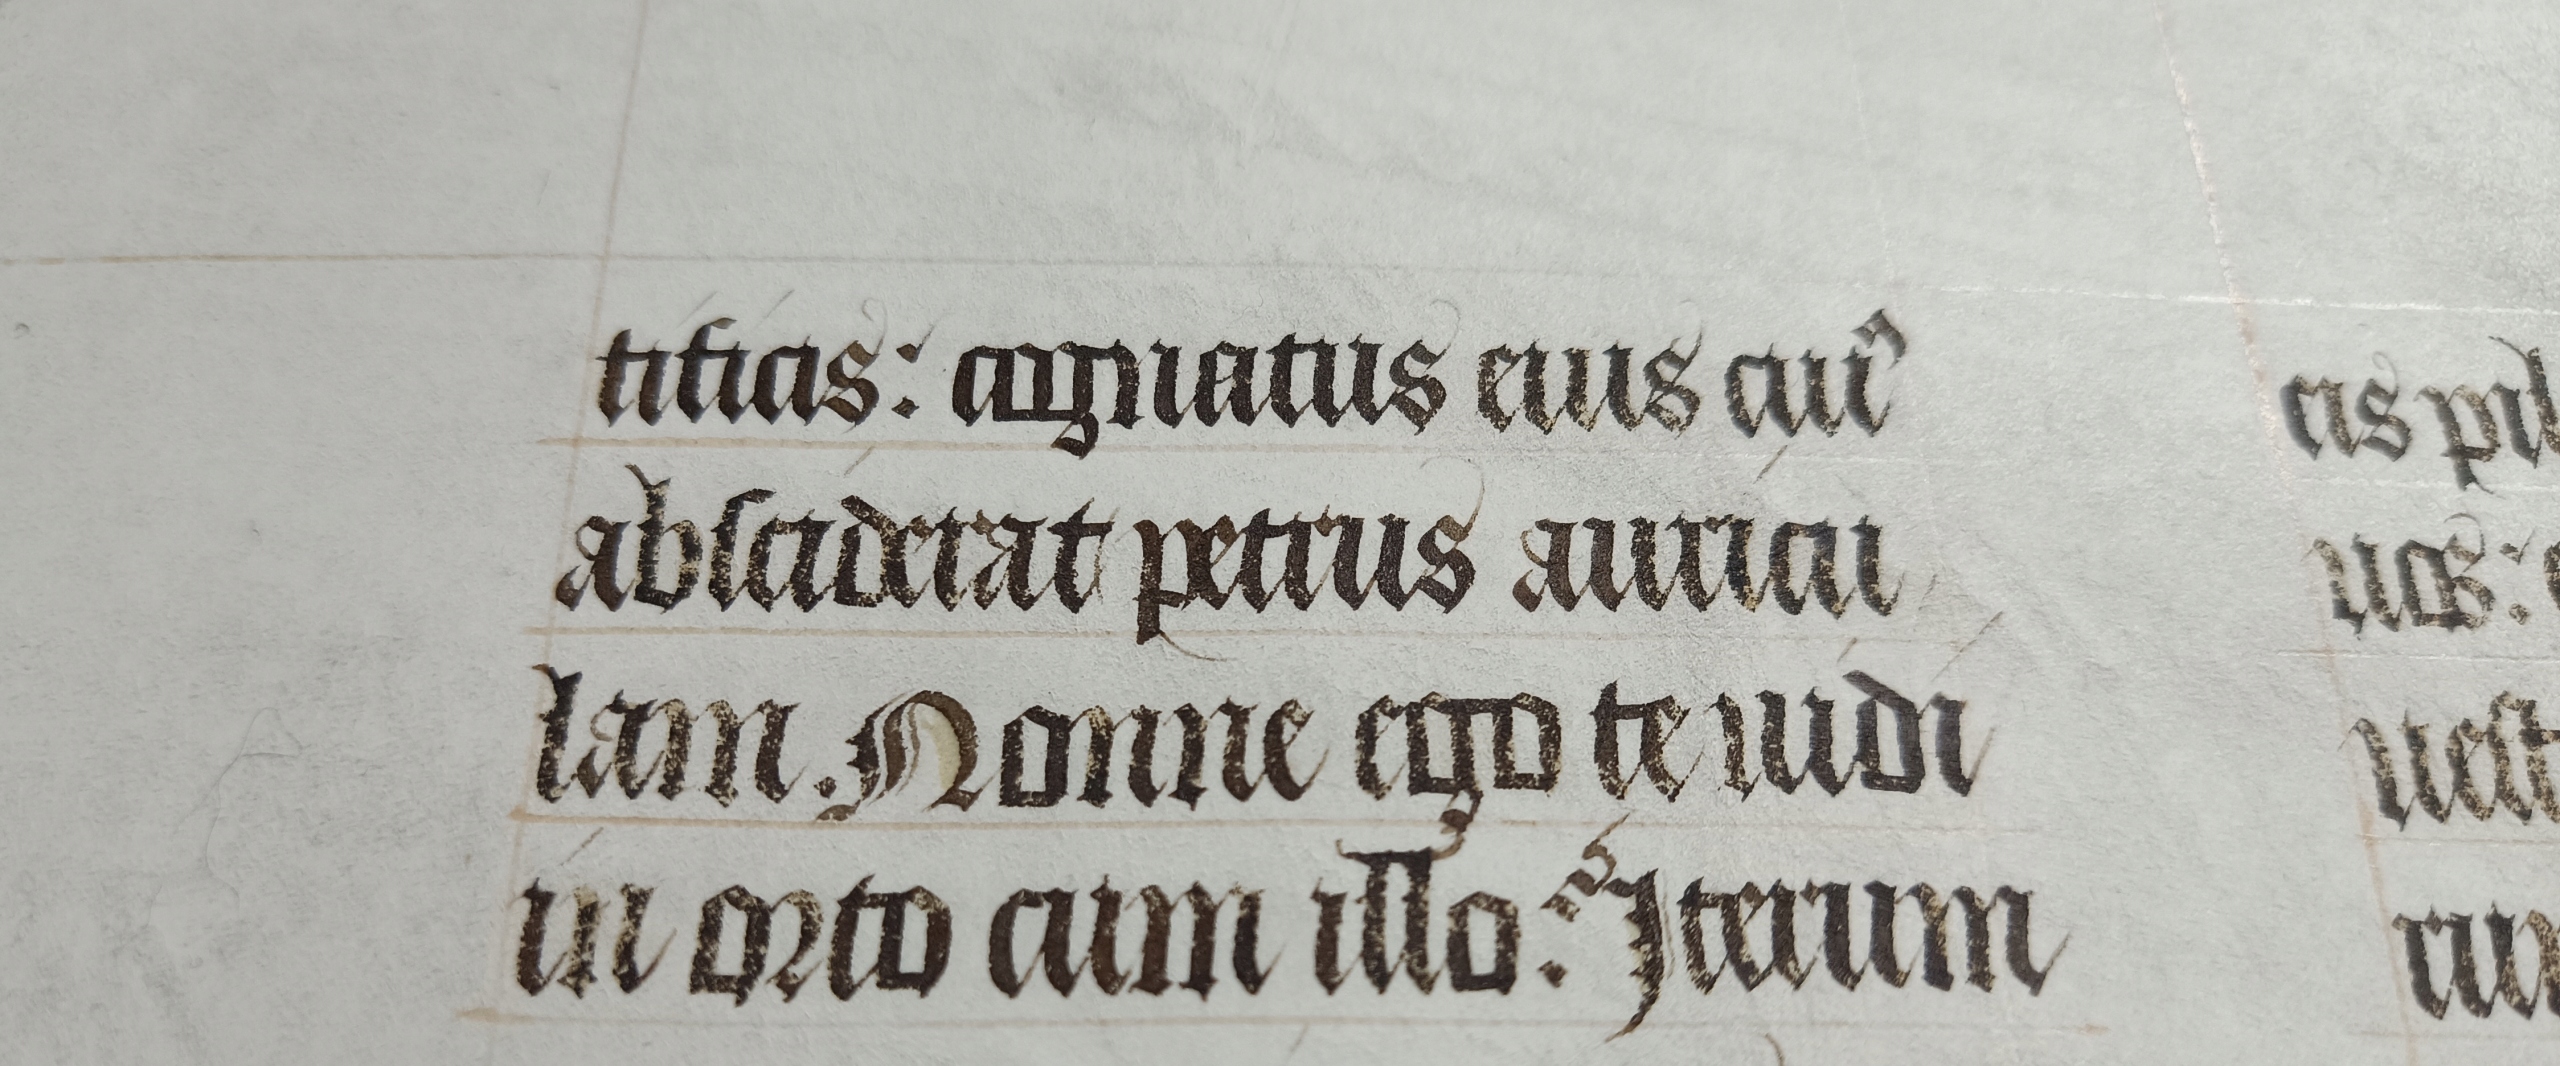 tificis: cognatus eius cuiꝰ
absciderat petrus auricu
lam. Nonne ego te uidi
in orto cum illo? Iterum
cis pil
ucs:
uest
rur